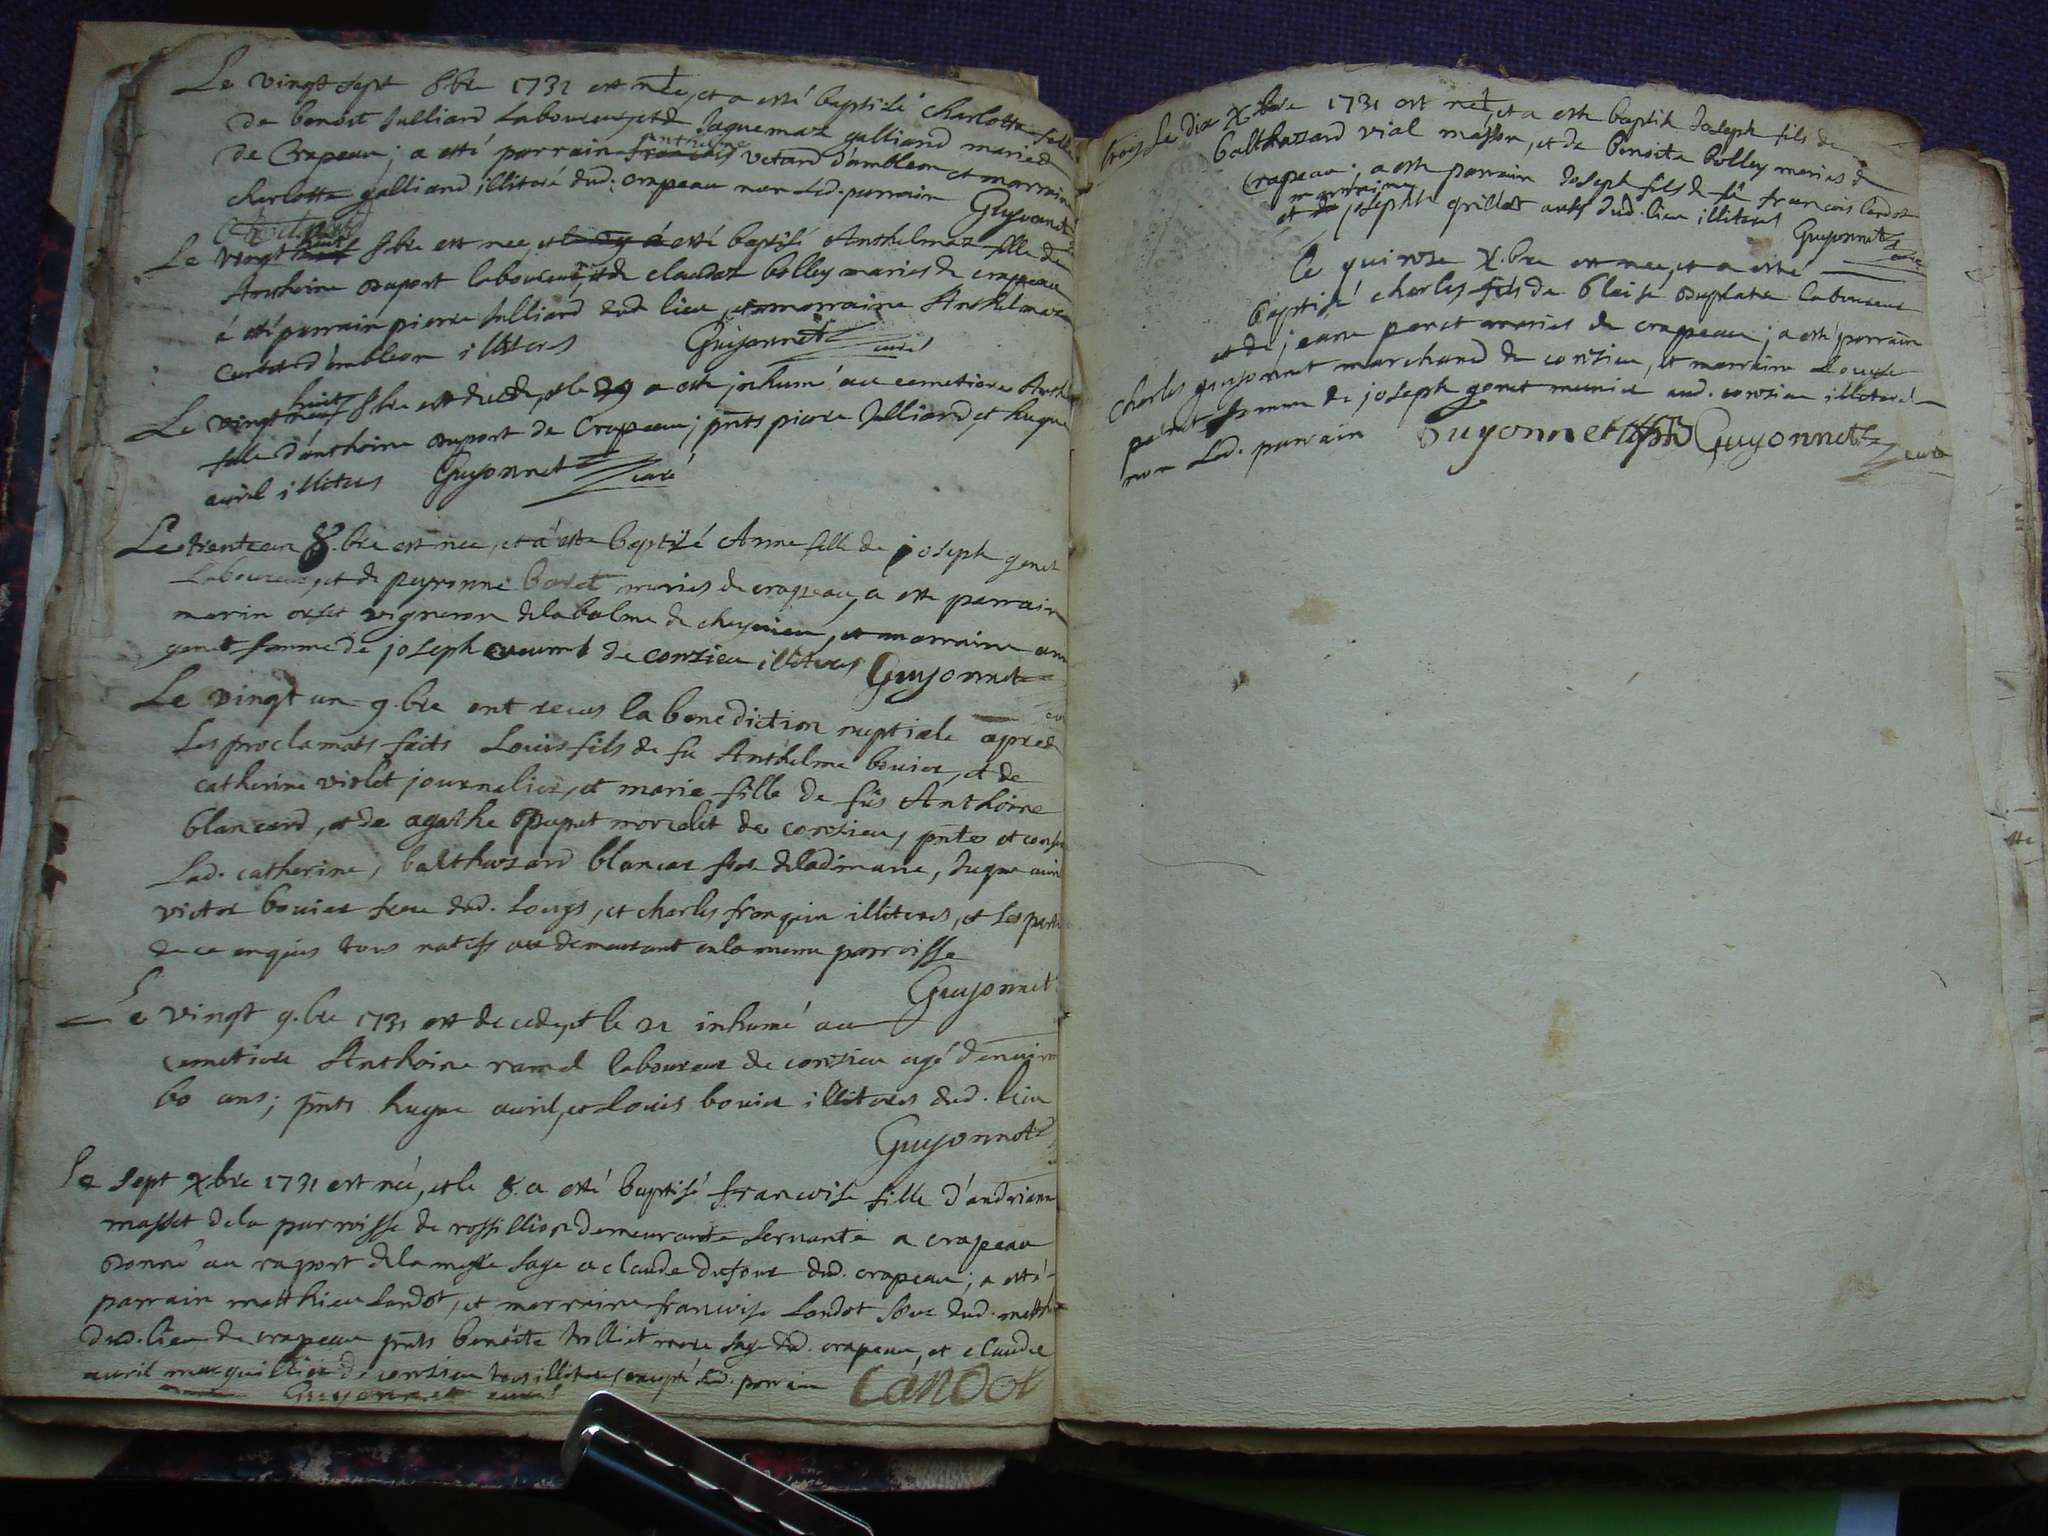 Le vingt sept 8bre 1731 est née, et a esté baptisé Charlotte fille
de benoit Julliard Laboureur, et de Jaquemaz galliand mariés
de Crapeau; a esté parrain anthelme vetard d'ambleon et marraine
charlotte galliand illiteré dud. crapeau non led. parrain Guyonnet
Le vingt huit 8bre est née, et a esté baptisé Anthelmaz fille de
Anthoine duport laboureur, et de claudaz bolley mariés de crapeau
a esté parrain pierre Julliard dud lieu, et marraine Anthelmaz
d'ambleon illiteres Guyonnet curé
Le vingt huit 8bre est decede, et le 29 a esté inhumé au cemetiere
fille d'anthoine duport de Crapeau; pnts piere Julliard, et hugue
avril illiteres Guyonnet curé
Le trente un 8.bre est née, et a esté baptizé Anne fille de joseph genet
Laboureur, et de peyronne boret mariés de crapeau, a esté parrain
marin vigneron de la balme de cheyrieu, et marraine
genet femme de joseph de conzieu illiteres Guyonnet
Le vingt un 9.bre ont receus la benediction nuptiale apres
Les proclamats faits Louis fils de fu Anthelme bouier, et de
catherine violet journalier, et marie fille de fûs Anthoine
blancard, et de agathe pupet de conzieu, pntes et
Lad. catherine, balthazard blancar frere de lad. marie, hugue avril
victor bouier frere dud. Louys, et charles franquin illiteres, et les parties
de ce enquis tous natifs ou demeurant en la meme parroisse
Guyonnet
Le vingt 9.bre 1731 est decede, et le 21 inhumé au
cemetiere Anthoine ramel laboureur de conzieu agé d'environ
60 ans; pnts hugue avril, et Louis bouier illiteres dud. lieu
Guyonnet
Le sept xbre 1731 est née, et le 8. a esté baptisé francoise fille d'andrianne
masset de la parroisse de rossillion demeurante servante a crapeau
donné au raport de la mere sage a claude dufour dud. crapeau; a esté
parrain matthieu Landot, et marraine francoise Landot soeur dud. matthieu
dud. lieu de crapeau pnts benoite trolliet mere sage dud. crapeau, et claude
avril marguillier de conzieu tous illiteres excepté led. parrain Landot
Guyonnet curé
Le dix xbre 1731 est né, et a esté baptisé Joseph fils de
balthazard vial masson, et de benoite bolley mariés de
Crapeau; a esté parrain Joseph fils de fû francois Landot
et marraine josephte grillet dud. lieu illiteres Guyonnet curé
Le quinze x.bre est née, et a esté
baptisé charles fils de blaise duplatre laboureur
et de jeane peret mariés de crapeau; a esté parrain
charles guyonnet marchand de conzieu, et marraine Louyse
peret femme de joseph genet munier aud. conzieu illiteré
non Led. parrain Guyonnet Guyonnet curé